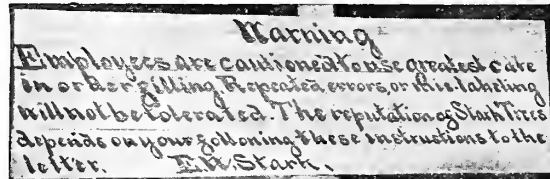 Warning
Employees are cautioned to use greatest care
in order filling. Repeated errors or mis-labeling
will not be tolerated. The reputation of Stark Trees
depends on your following these instructions to the
letter. E.W. Stark.